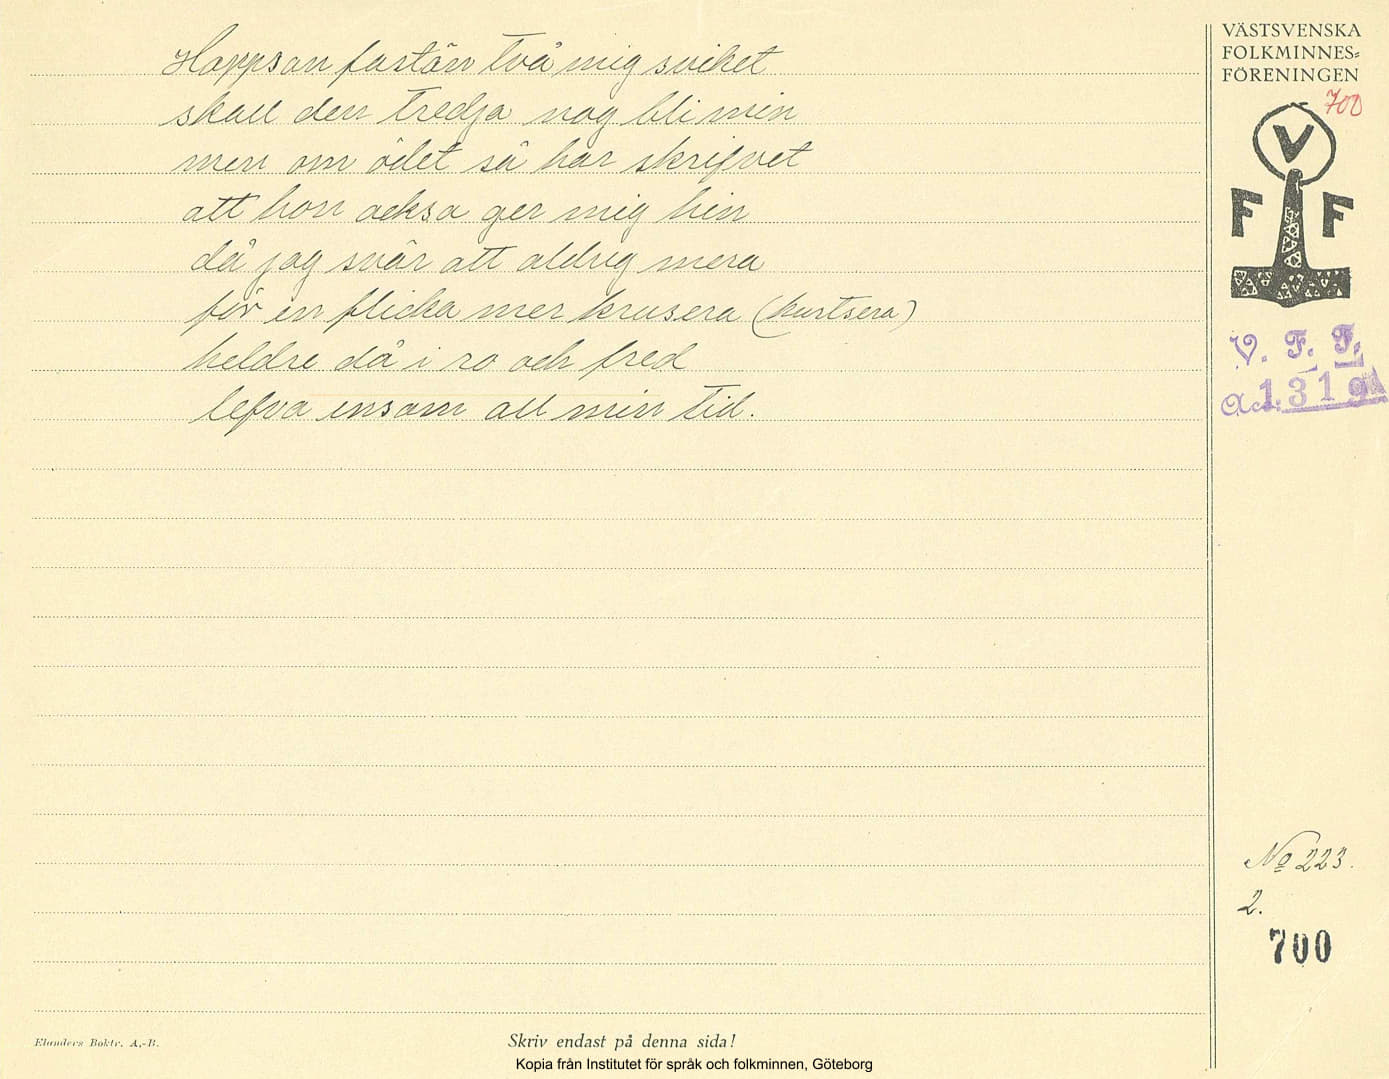 Hoppsan fastän två mig sviket
skall den tredja nog bli min
men om ödet så har skrifvet
att hon åcksa ger mig hin
då jag svär att aldrig mera
för en flicka mer krusera (kurtsera)
heldre då i ro och fred
lefva ensam all min tid.
VÄSTSVENSKA
FOLKMINNES-
FÖRENINGEN
700
V
F F
V. F. F.
Acc. 1319
No 223.
2.
700
Elanders Boktr. A.-B.
Skriv endast på denna sida!
Kopia från Institutet för språk och folkminnen, Göteborg